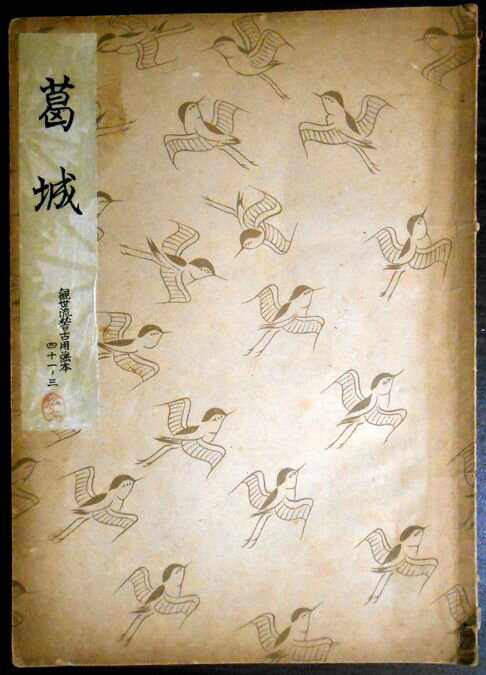 葛城
観世流稽古用謡本
四十一ノ三